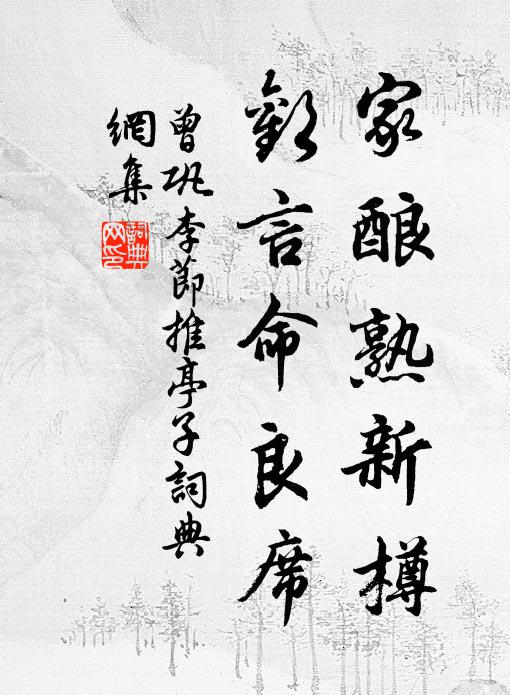 家酿熟新樽
歡言命良席
曾巩李節推亭子詞典
網集
詞典
网印